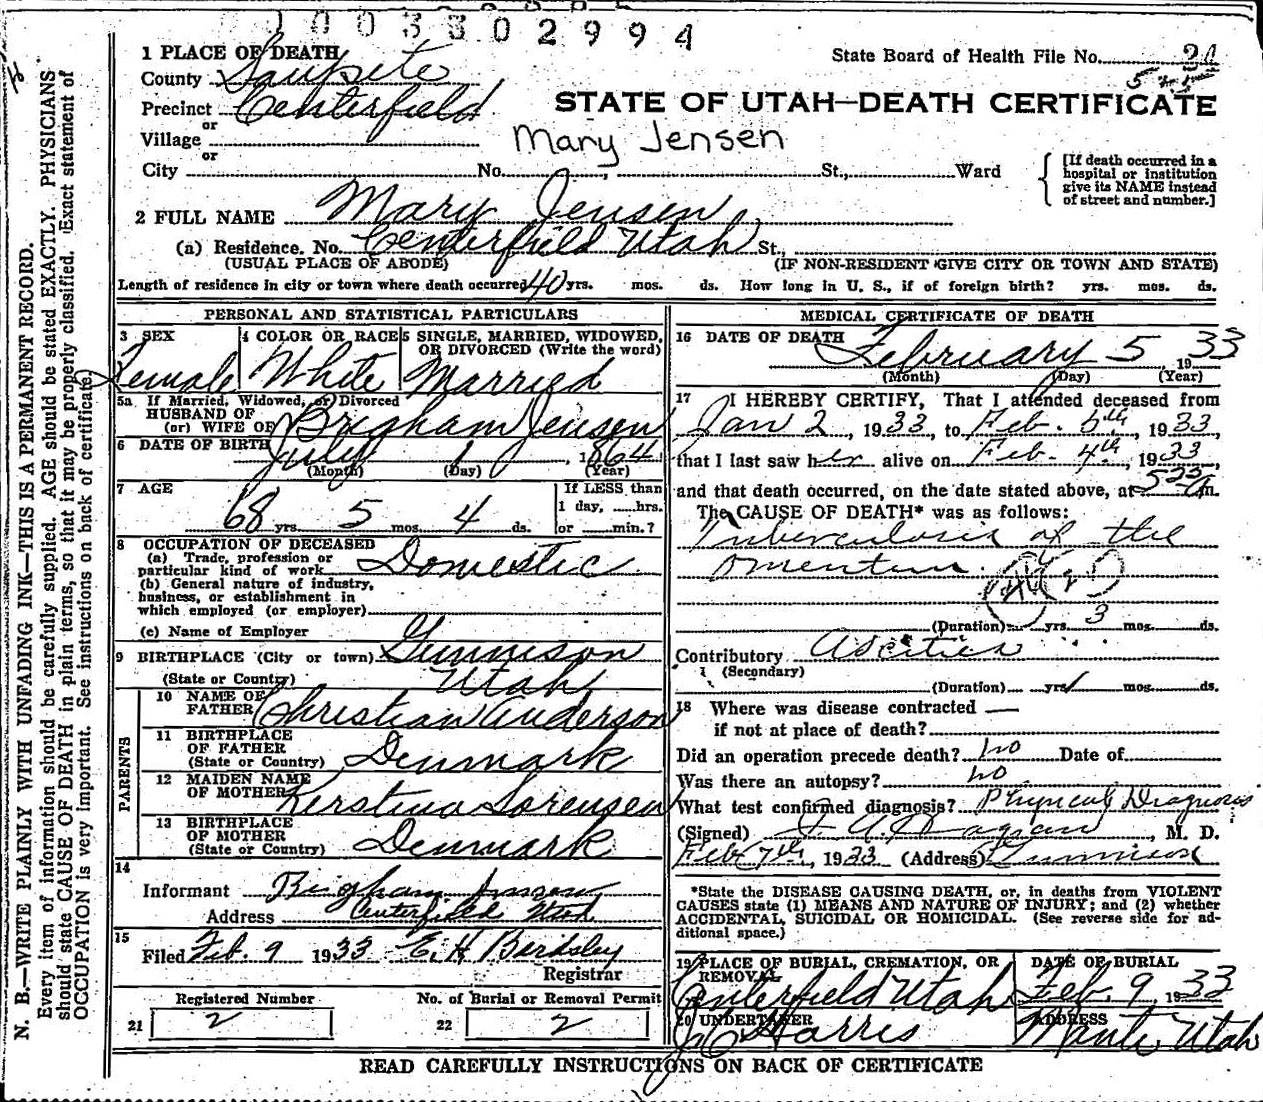 0 0 3 3 0 2 9 9 4
1 PLACE OF DEATH
State Board of Health File No.
County Sanpete
Precinct Centerfield
STATE OF UTAH—DEATH CERTIFICATE
or
Village
Mary Jensen
or
City No. , St., Ward
[If death occurred in a
hospital or institution
give its NAME instead
of street and number.]
2 FULL NAME Mary Jensen
(a) Residence. No. Centerfield Utah St.,
(USUAL PLACE OF ABODE) (IF NON-RESIDENT GIVE CITY OR TOWN AND STATE)
Length of residence in city or town where death occurred 40 yrs. mos. ds. How long in U. S., if of foreign birth? yrs. mos. ds.
PERSONAL AND STATISTICAL PARTICULARS
3 SEX
Female
4 COLOR OR RACE
White
5 SINGLE, MARRIED, WIDOWED,
OR DIVORCED (Write the word)
Married
5a If Married, Widowed, or Divorced
HUSBAND OF
(or) WIFE OF Brigham Jensen
6 DATE OF BIRTH July 1, 1864
(Month) (Day) (Year)
7 AGE
68 yrs. 5 mos. 4 ds.
If LESS than
1 day, hrs.
or min.?
8 OCCUPATION OF DECEASED
(a) Trade, profession or
particular kind of work Domestic
(b) General nature of industry,
business, or establishment in
which employed (or employer)
(c) Name of Employer
9 BIRTHPLACE (City or town) Gunnison
(State or Country) Utah
PARENTS
10 NAME OF
FATHER Christian Anderson
11 BIRTHPLACE
OF FATHER
(State or Country) Denmark
12 MAIDEN NAME
OF MOTHER Kerstina Sorensen
13 BIRTHPLACE
OF MOTHER
(State or Country) Denmark
14
Informant Brigham Jensen
Address Centerfield Utah
15
Filed Feb. 9 1933 E. H. Bardsley
Registrar
Registered Number
21 2
No. of Burial or Removal Permit
22 2
MEDICAL CERTIFICATE OF DEATH
16 DATE OF DEATH
February 5 1933
(Month) (Day) (Year)
17 I HEREBY CERTIFY, That I attended deceased from
Jan 2, 1933, to Feb. 5th, 1933,
that I last saw her alive on Feb. 4th, 1933,
and that death occurred, on the date stated above, at 525 A m.
The CAUSE OF DEATH* was as follows:
Tuberculosis of the
omentum.
(Duration) yrs. 3 mos. ds.
Contributory Ascites
(Secondary)
(Duration) yrs. 1 mos. ds.
18 Where was disease contracted
if not at place of death?
Did an operation precede death? no Date of
Was there an autopsy? no
What test confirmed diagnosis? Physical Diagnosis
(Signed) , M. D.
Feb 7th, 1933 (Address) Gunnison
*State the DISEASE CAUSING DEATH, or, in deaths from VIOLENT
CAUSES state (1) MEANS AND NATURE OF INJURY; and (2) whether
ACCIDENTAL, SUICIDAL OR HOMICIDAL. (See reverse side for ad-
ditional space.)
19 PLACE OF BURIAL, CREMATION, OR
REMOVAL
Centerfield Utah
DATE OF BURIAL
Feb. 9, 1933
20 UNDERTAKER
Harris
ADDRESS
Manti Utah
READ CAREFULLY INSTRUCTIONS ON BACK OF CERTIFICATE
N. B.—WRITE PLAINLY WITH UNFADING INK—THIS IS A PERMANENT RECORD.
Every item of information should be carefully supplied. AGE should be stated EXACTLY. PHYSICIANS
should state CAUSE OF DEATH in plain terms, so that it may be properly classified. Exact statement of
OCCUPATION is very important. See instructions on back of certificate.